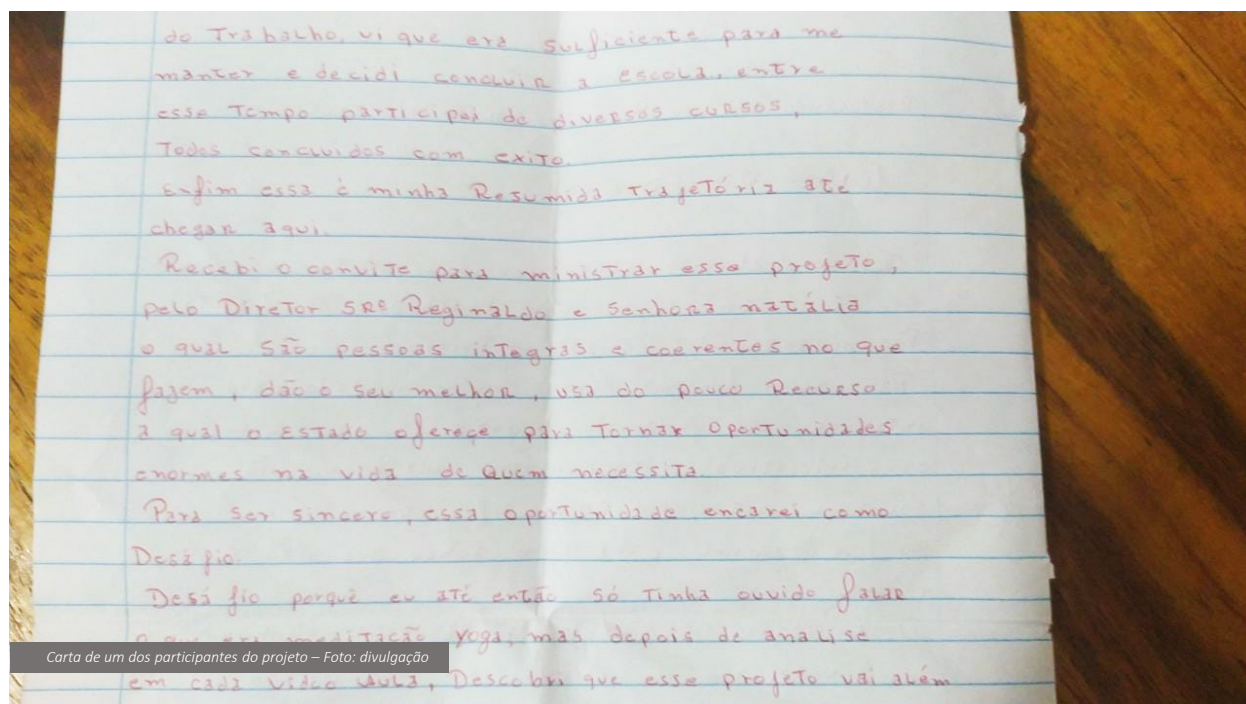 do Trabalho, vi que era suficiente para me
manter e decidi concluir a escola, entre
esse Tempo participei de diversos cursos,
Todos concluidos com exito.
Enfim essa é minha Resumida Trajetória até
chegar aqui.
Recebi o convite para ministrar esse projeto,
pelo Diretor SRº Reginaldo e Senhora natália
o qual São pessoas integras e coerentes no que
fazem, dão o seu melhor, usa do pouco Recurso
a qual o Estado ofereçe para Tornar oportunidades
enormes na vida de Quem necessita.
Para ser sincero, essa oportunidade encarei como
Desafio.
Desafio porquê eu até então só Tinha ouvido falar
o que era meditação yoga, mas depois de analise
em cada vídeo Aula, Descobri que esse projeto vai além
Carta de um dos participantes do projeto – Foto: divulgação